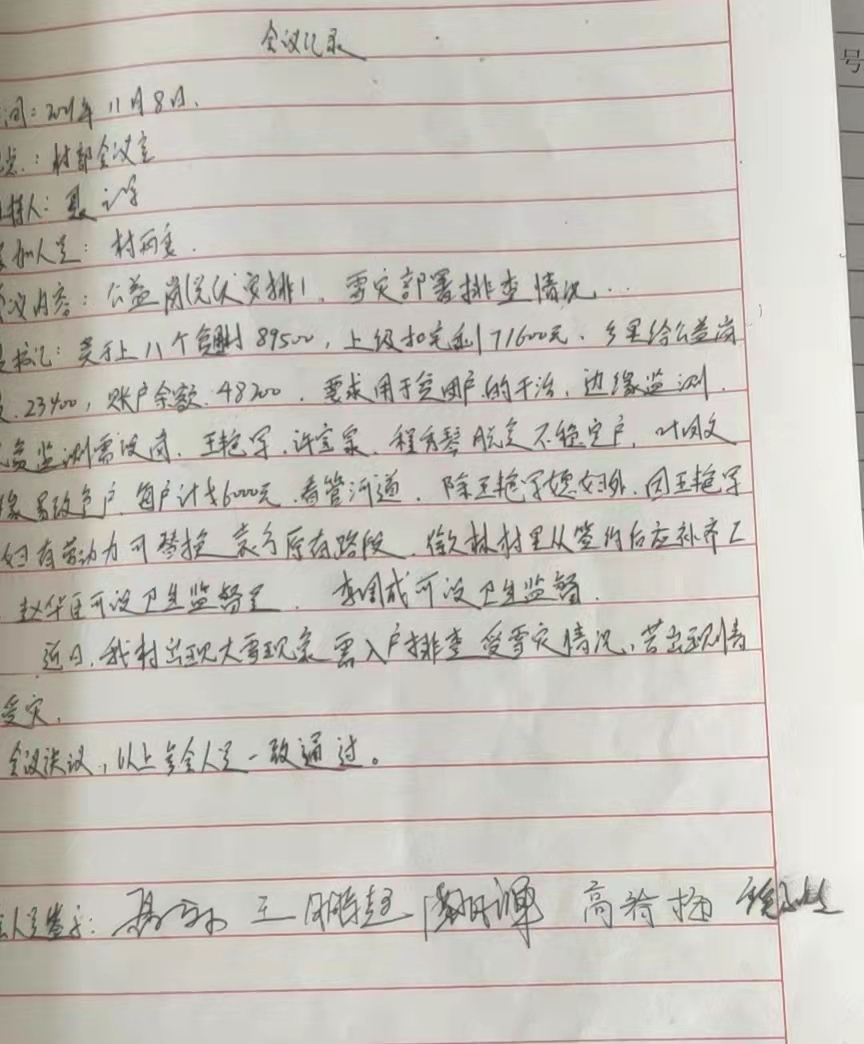 会议记录
间:2021年11月8日.
点:村部会议室
持人:聂
参加人员:村两委.
会议内容:公益岗 安排、雪灾部署排查情况...
上 八个 89500,上级扣完剩71600元、乡里给公益岗
23400,账户余额.48200.要求用于贫困户的干活,边缘监测.
监测需设岗.王艳军.许宝泉.程秀琴脱贫不稳定户,叶凤文
缘易致贫户.每户计划6000元.看管河道.除王艳军媳妇外.因王艳军
妇有劳动力可替换 原有路段. 林村里从签约后应补齐工
赵华臣可设卫生监督员. 李国成可设卫生监督.
近日.我村出现大雪现象需入户排查受雪灾情况,若出现情
受灾.
会议决议,以上参会人员一致通过。
人员签字: 王鹏超 高
号